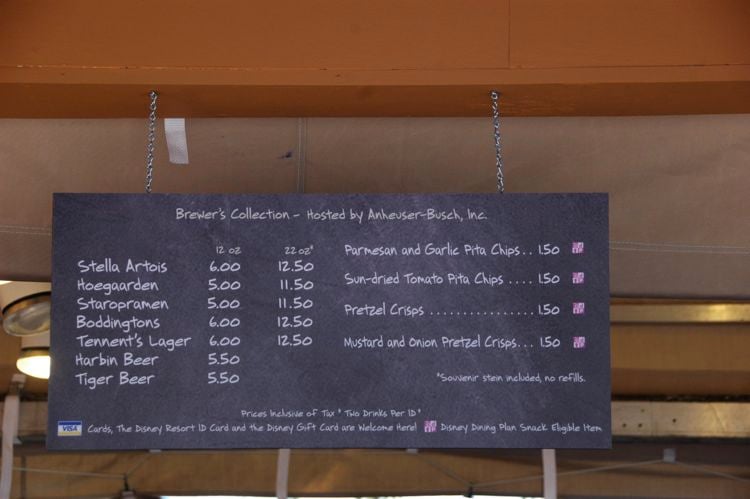 Brewer's Collection - Hosted by Anheuser-Busch, Inc.
12 oz 22 oz*
Stella Artois 6.00 12.50
Hoegaarden 5.00 11.50
Staropramen 5.00 11.50
Boddingtons 6.00 12.50
Tennent's Lager 6.00 12.50
Harbin Beer 5.50
Tiger Beer 5.50
Parmesan and Garlic Pita Chips.. 1.50
Sun-dried Tomato Pita Chips .... 1.50
Pretzel Crisps ................ 1.50
Mustard and Onion Pretzel Crisps... 1.50
*Souvenir stein included, no refills.
Prices Inclusive of Tax * Two Drinks Per ID *
VISA Cards, The Disney Resort ID Card and the Disney Gift Card are Welcome Here! Disney Dining Plan Snack Eligible Item